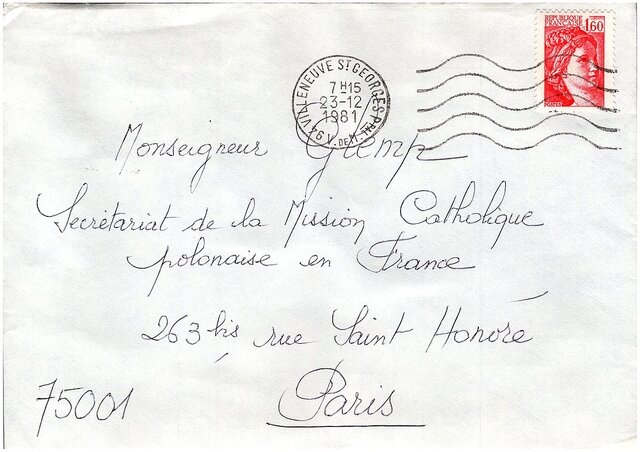 RÉPUBLIQUE
FRANÇAISE 1,60
POSTES
VILLENEUVE ST GEORGES PPAL
7H15
23-12
1981
94 V. DE M.
Monseigneur Glemp
Secrétariat de la Mission Catholique
polonaise en France
263 bis rue Saint Honoré
75001 Paris